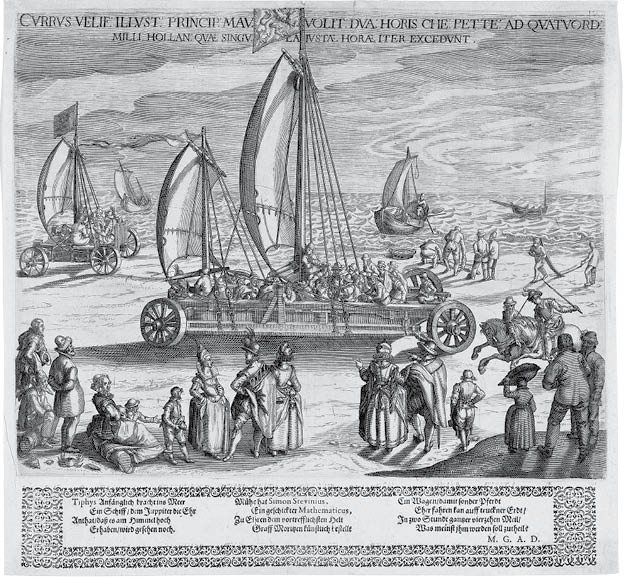 CVRRVS VELIF. ILLVST. PRINCIP. MAV VOLIT. DVA. HORIS CHE PETTE. AD QVATVORD
MILLI. HOLLAN. QVÆ SINGV LA IVSTÆ. HORÆ ITER EXCEDVNT.
Tiphys Anfänglich bracht ins Meer
Ein Schiff / dem Juppiter die Ehr
Anthat / daß es am Himmel hoch
Erhaben / wird gesehen noch.
Mühe hat Simon Stevinius,
Ein geschickter Mathematicus,
Zu Ehren dem vortrefflichsten Helt
Graff Moritzen künstlich bestellt
Ein Wagen / damit ohn der Pferdt
Eher fahren kan auff truckner Erdt /
In zwo Stundt gantzer vierzehen Meil /
Was meinst ihm werden soll zu theil?
M. G. A. D.